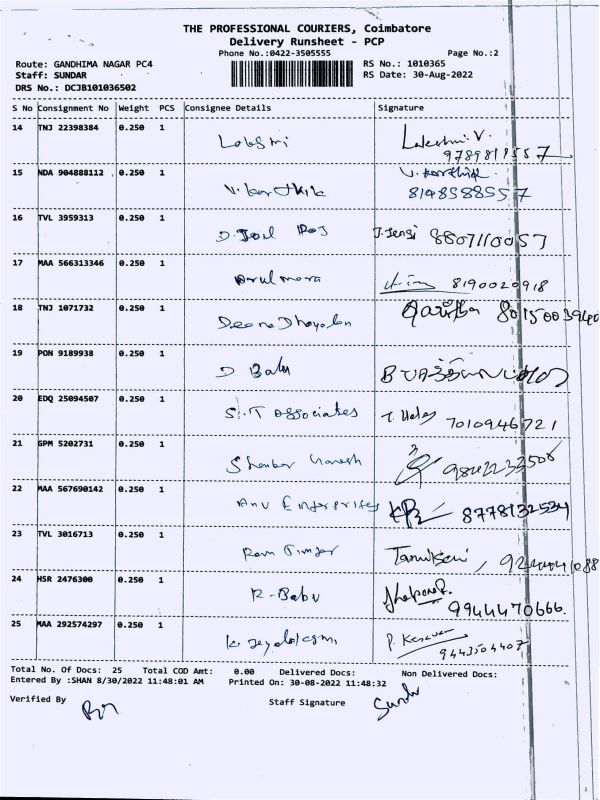 THE PROFESSIONAL COURIERS, Coimbatore
Delivery Runsheet - PCP
Phone No.:0422-3505555 Page No.:2
Route: GANDHIMA NAGAR PC4 RS No.: 1010365
Staff: SUNDAR RS Date: 30-Aug-2022
DRS No.: DCJB101036502
S No Consignment No Weight PCS Consignee Details Signature
14 TNJ 22398384 0.250 1 Lakshmi Lakshmi. V.
15 NDA 904888112 0.250 1 V. Karthik V. Karthik
8148588557
16 TVL 3959313 0.250 1 D. Joel Raj J. Jensi 8807110057
17 MAA 566313346 0.250 1 8190020918
18 TNJ 1071732 0.250 1 Deena Dhayalan 8015003940
19 PON 9189938 0.250 1 D Babu
20 EDQ 25094507 0.250 1 S.T Associates
7010946721
21 GPM 5202731 0.250 1 Shankar Ganesh
22 MAA 567690142 0.250 1 Anu Enterprises 8778132534
23 TVL 3016713 0.250 1 Tamilselvi
24 HSR 2476300 0.250 1 R-Babu
9944470666.
25 MAA 292574297 0.250 1 K. Jeyalakshmi P. Kesavan
9443504407
Total No. Of Docs: 25 Total COD Amt: 0.00 Delivered Docs: Non Delivered Docs:
Entered By :SHAN 8/30/2022 11:48:01 AM Printed On: 30-08-2022 11:48:32
Verified By Staff Signature Sundar